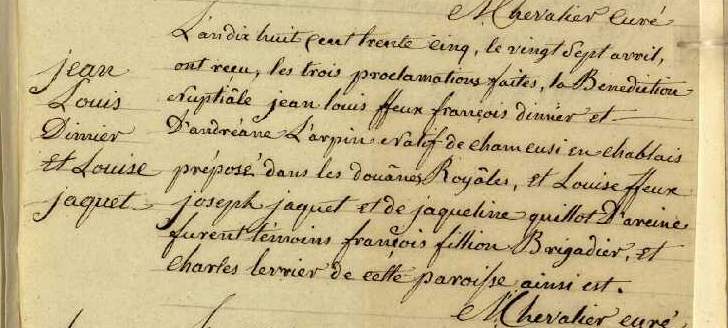 M. Chevalier curé
L'an dix huit cent trente cinq, le vingt sept avril,
ont reçu, les trois proclamations faites, la Benediction
nuptiâle jean louis ffeux françois dimier et
D'andréane L'arpin natif de chameusi en chablais
préposé dans les doüânes Royâles, et Louise ffeux
joseph jaquet et de jaqueline guillot D'areine
furent témoins françois fillion Brigadier, et
charles lerrier de cette paroisse ainsi est.
M. Chevalier curé
jean
Louis
Dimier
et Louise
jaquet